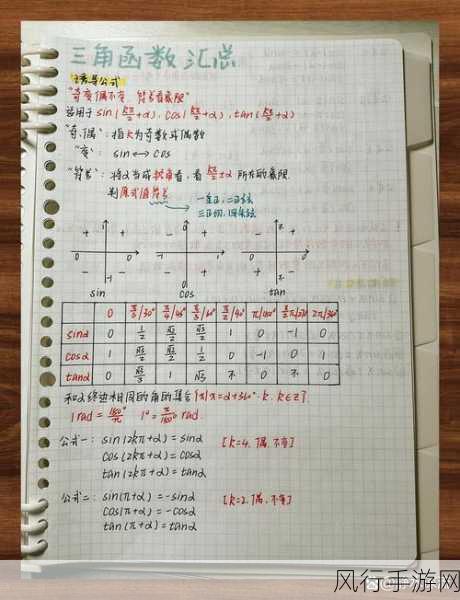 三角函数汇总
诱导公式
"奇变偶不变，符号看象限"
适用于 sin(kπ/2+α), cos(kπ/2+α), tan(kπ/2+α)
"奇、偶"：指k为奇数或偶数
"变"：sin↔cos
"符号"：将α当成锐角看，看kπ/2±α所在的象限
判原式值符号
一全正，二正弦
三正切，四余弦
sin cos tan
0 π/6/30° π/4/45° π/3/60° π/2/90° π/180° 3π/2/270° 2π/360°
sinα 0 1/2 √2/2 √3/2 1 0 -1 0
cosα 1 √3/2 √2/2 1/2 0 -1 0 1
tanα 0 √3/3 1 √3 不 0 不 0
和α终边相同的角的集合{x|x=α+360°·k, k∈Z}
1 rad = 180°/π 1° = π/180° rad
公式一：sin(2kπ+α)=sinα [k=4, 偶, 不变]
cos(2kπ+α)=cosα
tan(2kπ+α)=tanα
公式二：sin(π+α)=-sinα [k=2, 偶, 不变]
cos(π+α)=-cosα
tan(π+α)=tanα
风行手游网